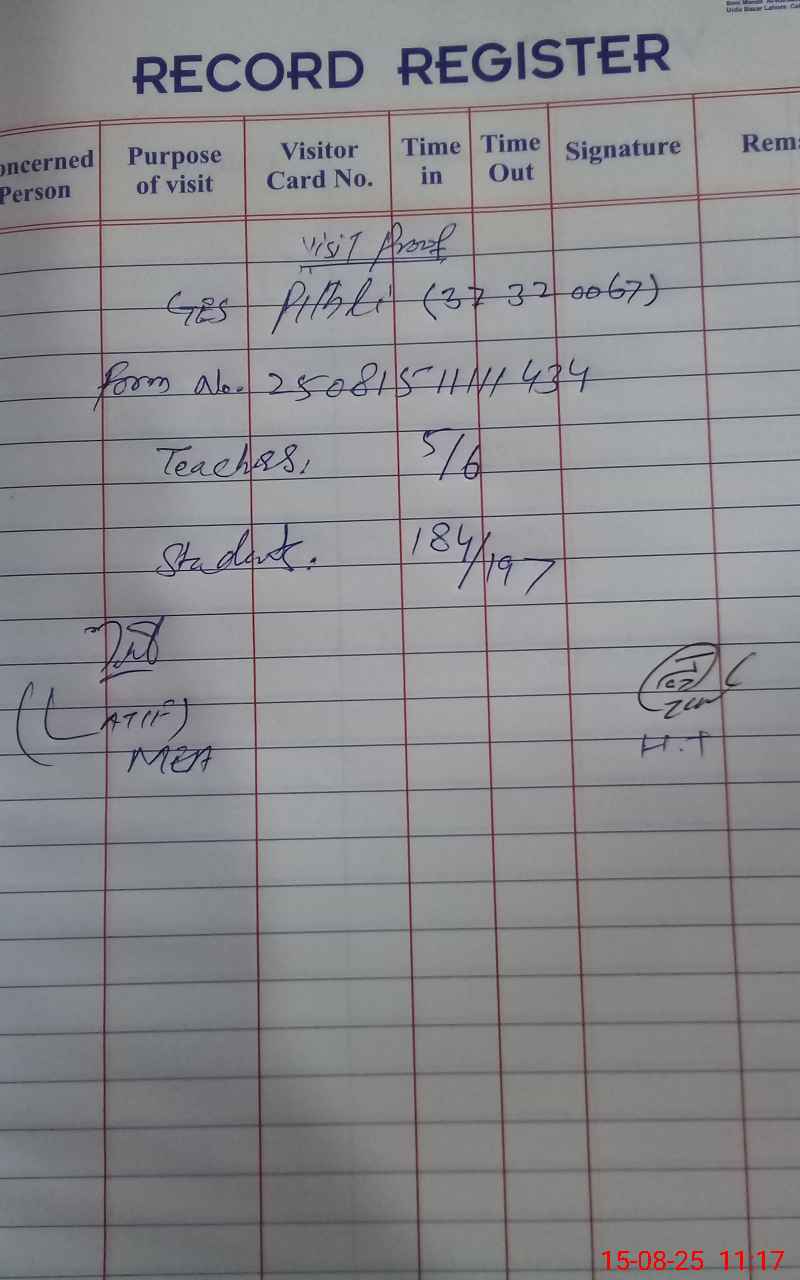 Urdu Bazar Lahore
RECORD REGISTER
oncerned Person
Purpose of visit
Visitor Card No.
Time in
Time Out
Signature
Rem
Visit Proof
GES (37320067)
Form No. 25081511111434
Teachers, 5/6
Student. 184/197
(LATIF)
MEA
H.T
15-08-25 11:17